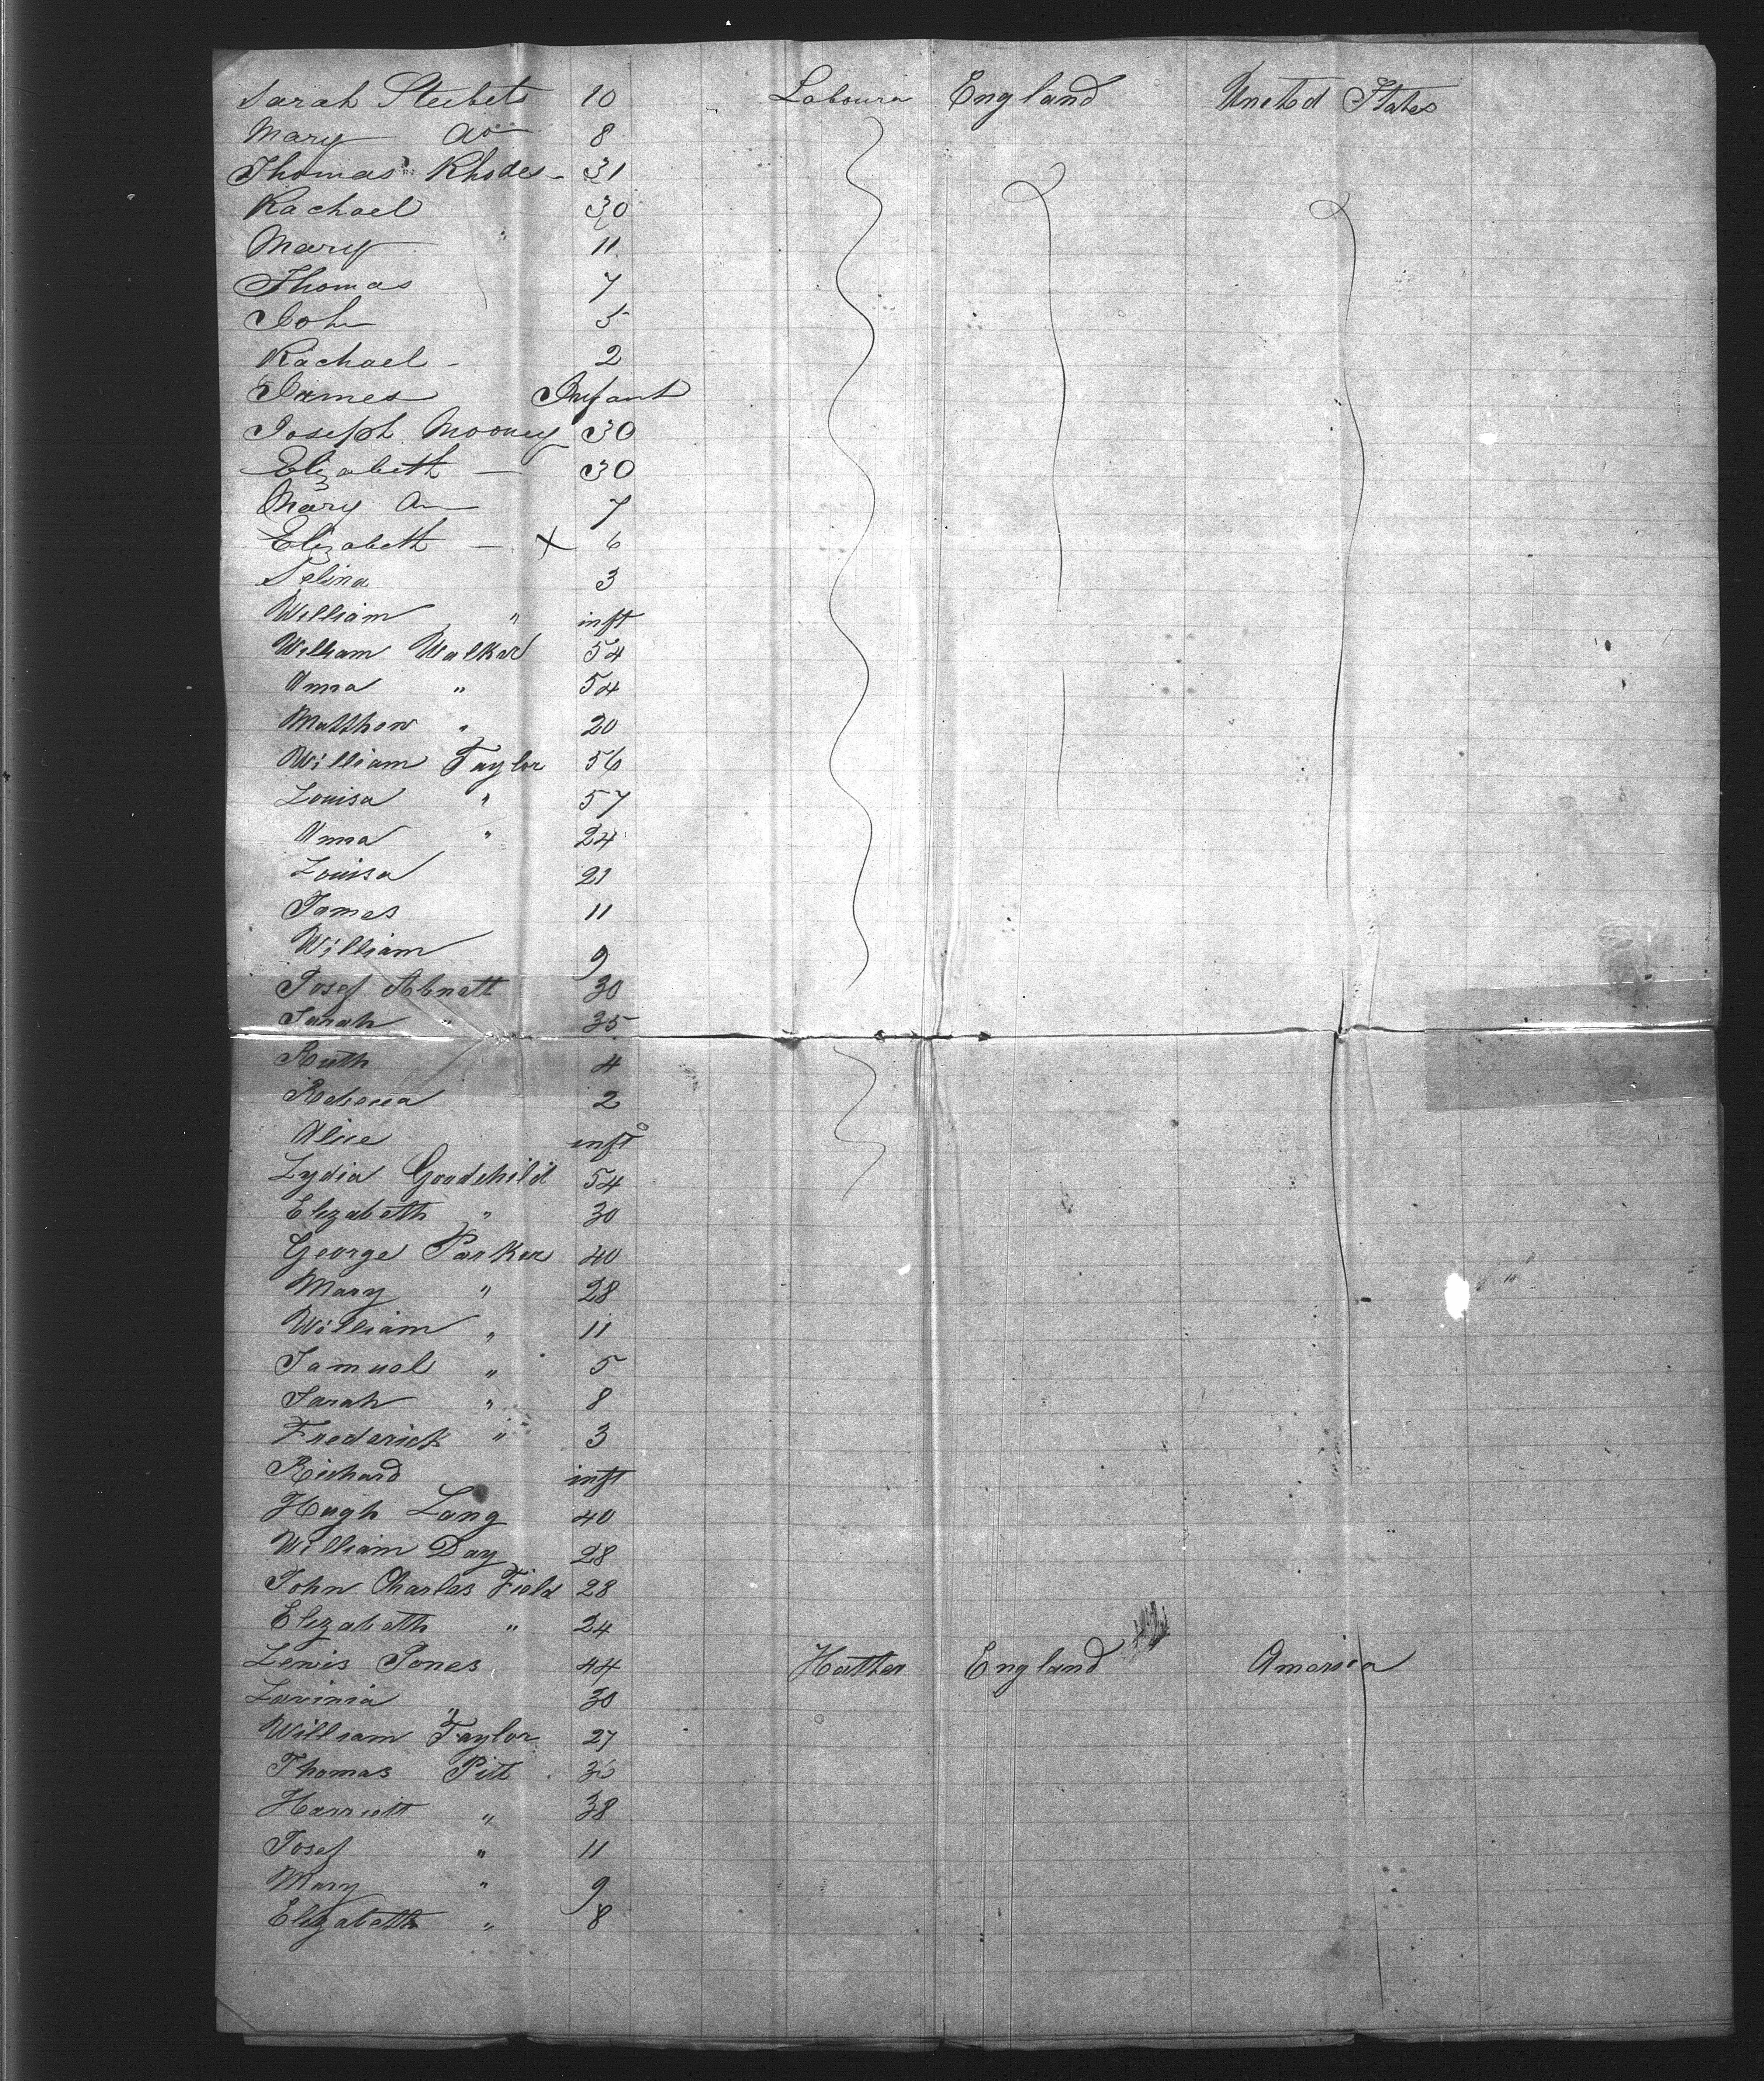 Sarah Steibets 10 Labourer England United States
Mary do 8
Thomas Rhodes 31
Rachael " 30
Mary 11
Thomas 7
Joh 5
Rachael - 2
James Infant
Joseph Mooney 30
Elizabeth - 30
Mary An 7
Elizabeth - x 6
Selina 3
William " inft
William Walker 54
Anna " 54
Matthew " 20
William Taylor 56
Louisa " 57
Anna " 24
Louisa 21
James 11
William 9
Josef Abnett 30
Sarah " 35
Ruth 4
Rebecca 2
Alice inft
Lydia Goodchild 54
Elizabeth " 30
George Parker 40
Mary " 28
William " 11
Samuel " 5
Sarah " 8
Frederick " 3
Richard inft
Hugh Lang 40
William Day 28
John Charles Field 28
Elizabeth " 24
Lewis Jones 44 Hatter England America
Lavinia " 30
William Taylor 27
Thomas Pitt 36
Harriett " 38
Josef " 11
Mary " 9
Elizabeth " 8